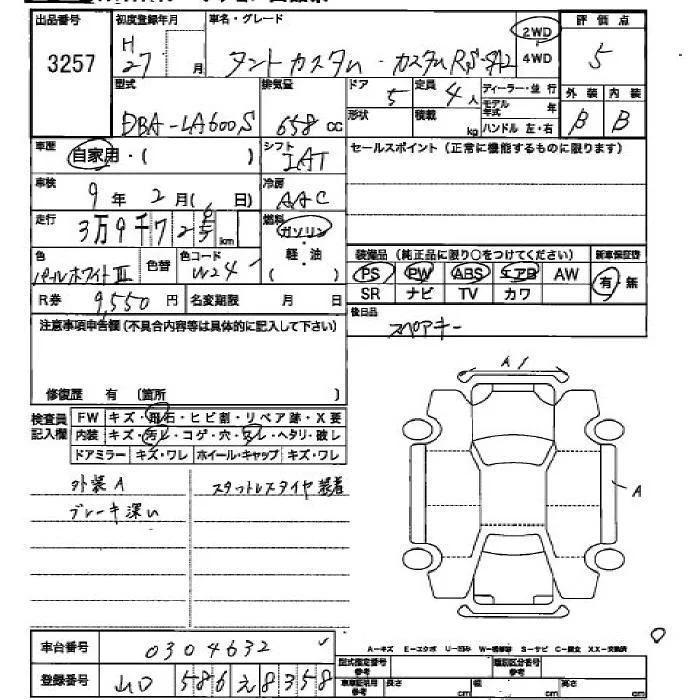 出品番号 初度登録年月 車名・グレード 評価点
3257 H27 月 タントカスタム・カスタムRS-SA2 2WD 4WD 5
型式 排気量 ドア 5 定員 4人 ディーラー・並行 外装 内装
DBA-LA600S 658cc 形状 積載 kg モデル年式 年 ハンドル 左・右 B B
車歴 自家用・( ) シフト IAT セールスポイント(正常に機能するものに限ります)
車検 9年2月( 日) 冷房 AAC
走行 3万9千7 2 km 燃料 ガソリン 軽・油 ( )
装備品(純正品に限り○をつけてください) 新車保証書
色 パールホワイトIII 色替 色コード W24
PS PW ABS エアB AW 有・無
SR ナビ TV カワ
R券 9,550円 名変期限 月 日
後日品 スペアキー
注意事項申告欄(不具合内容等は具体的に記入して下さい)
修復歴 有 (箇所 )
A1
検査員記入欄 FW キズ・飛石・ヒビ割・リペア跡・X要
内装 キズ・汚レ・コゲ・穴・スレ・ヘタリ・破レ
ドアミラー キズ・ワレ ホイール・キャップ キズ・ワレ
外装A スタットレスタイヤ装着
ブレーキ深い
A
A-キズ E-エクボ U-凹み W-補修跡 S-サビ C-腐食 XX-交換済
車台番号 0304632
型式指定番号 参考 類別区分番号 参考
登録番号 山口 586 え 8358
車庫証明用 参考 長さ cm 幅 cm 高さ cm